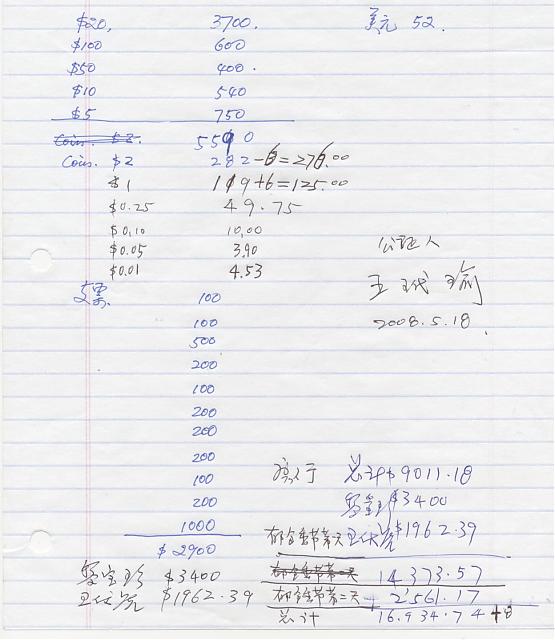 $20, 3700. 美元 52.
$100 600
$50 400.
$10 540
$5 750
Coin. $2. 5590
Coin. $2 282-6=276.00
$1 119+6=125.00
$0.25 49.75
$0.10 10.00
$0.05 3.90 公证人
$0.01 4.53 王
支票 100 2008.5.18
100
500
200
100
200
200
200
100 总计$9011.18
200 $3400
1000 $1962.39
$2900
$3400 14373.57
$1962.39 + 2561.17
总计 16.934.74+8